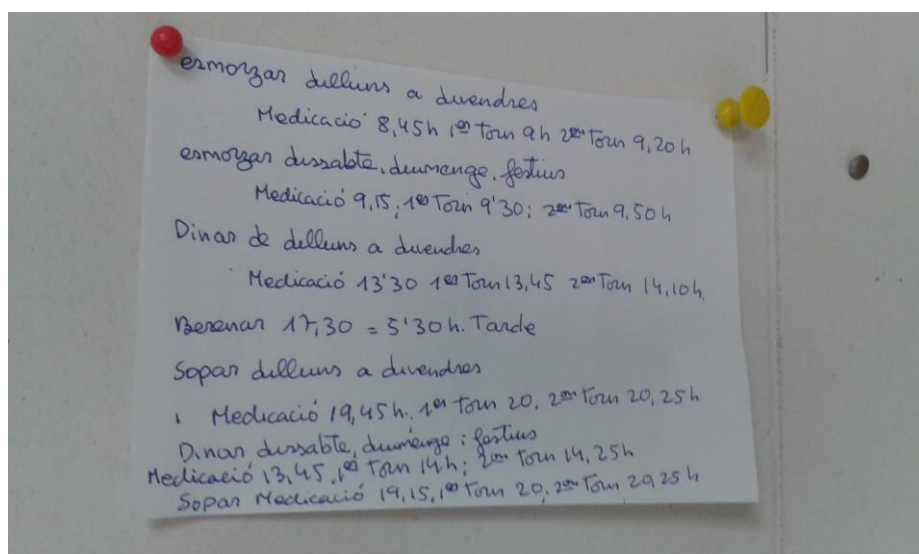 esmorzar dilluns a divendres
Medicació 8,45h 1er Torn 9h 2on Torn 9,20h
esmorzar dissabte, diumenge, festius
Medicació 9,15; 1er Torn 9'30; 2on Torn 9,50h
Dinar de dilluns a divendres
Medicació 13'30 1er Torn 13,45 2on Torn 14,10h.
Berenar 17,30 = 5'30h. Tarde
Sopar dilluns a divendres
Medicació 19,45h. 1er Torn 20. 2on Torn 20,25h
Dinar dissabte, diumenge i festius
Medicació 13,45, 1er Torn 14h; 2on Torn 14,25h
Sopar Medicació 19,15, 1er Torn 20, 2on Torn 20,25h